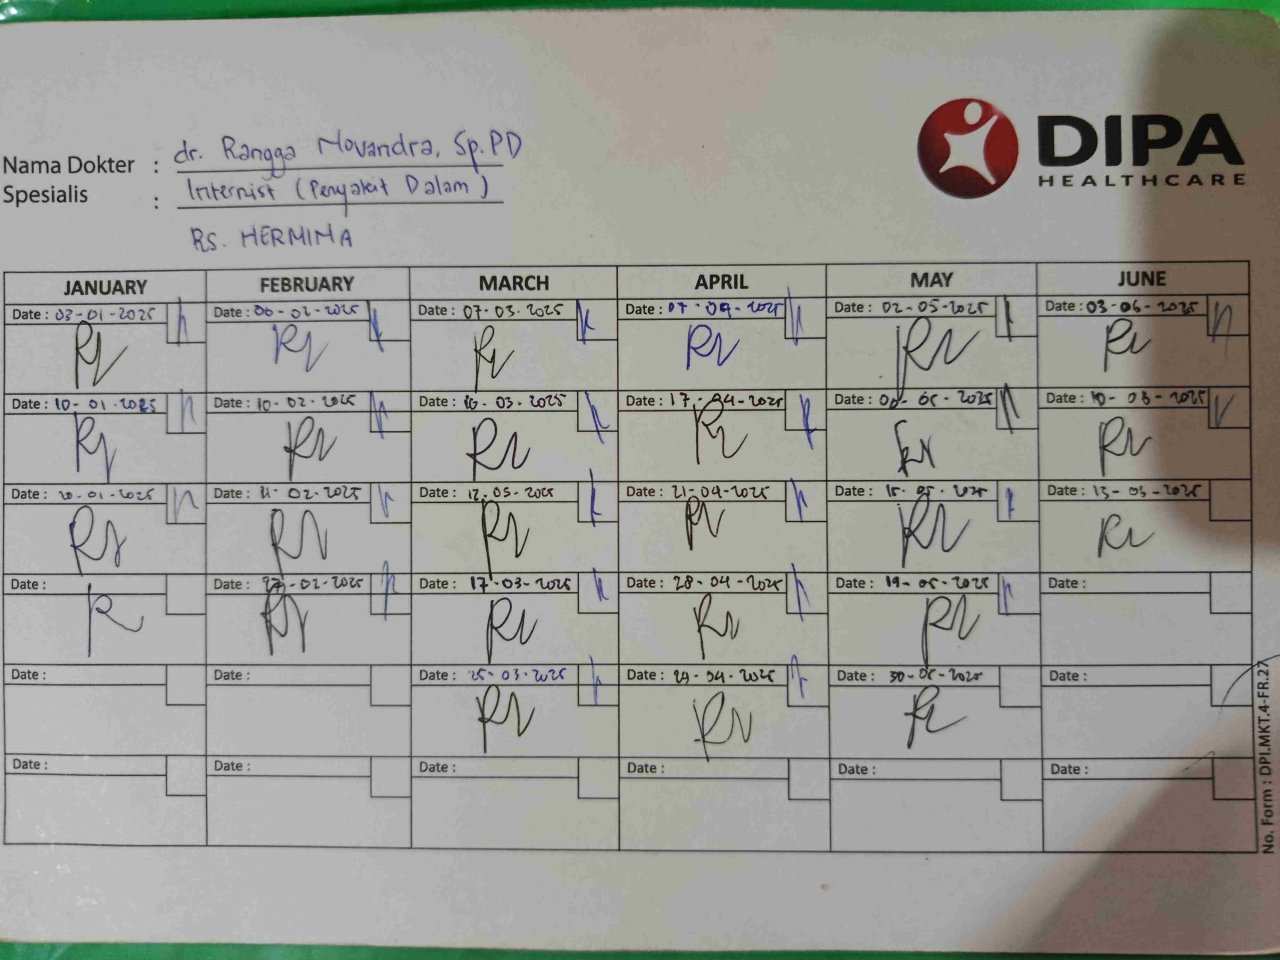 DIPA
HEALTHCARE
Nama Dokter : dr. Rangga Novandra, Sp.PD
Spesialis : Internist (Penyakit Dalam)
RS. HERMINA
JANUARY FEBRUARY MARCH APRIL MAY JUNE
Date : 03-01-2025 Date : 06-02-2025 Date : 07-03-2025 Date : 07-04-2025 Date : 02-05-2025 Date : 03-06-2025
Date : 10-01-2025 Date : 10-02-2025 Date : 10-03-2025 Date : 17-04-2025 Date : 06-05-2025 Date : 10-03-2025
Date : 20-01-2025 Date : 21-02-2025 Date : 12-05-2025 Date : 21-04-2025 Date : 15-05-2025 Date : 13-03-2025
Date : Date : 27-02-2025 Date : 17-03-2025 Date : 28-04-2025 Date : 19-05-2025 Date :
Date : Date : Date : 25-03-2025 Date : 29-04-2025 Date : 30-05-2025 Date :
Date : Date : Date : Date : Date : Date :
No. Form : DPI.MKT.4-FR.27